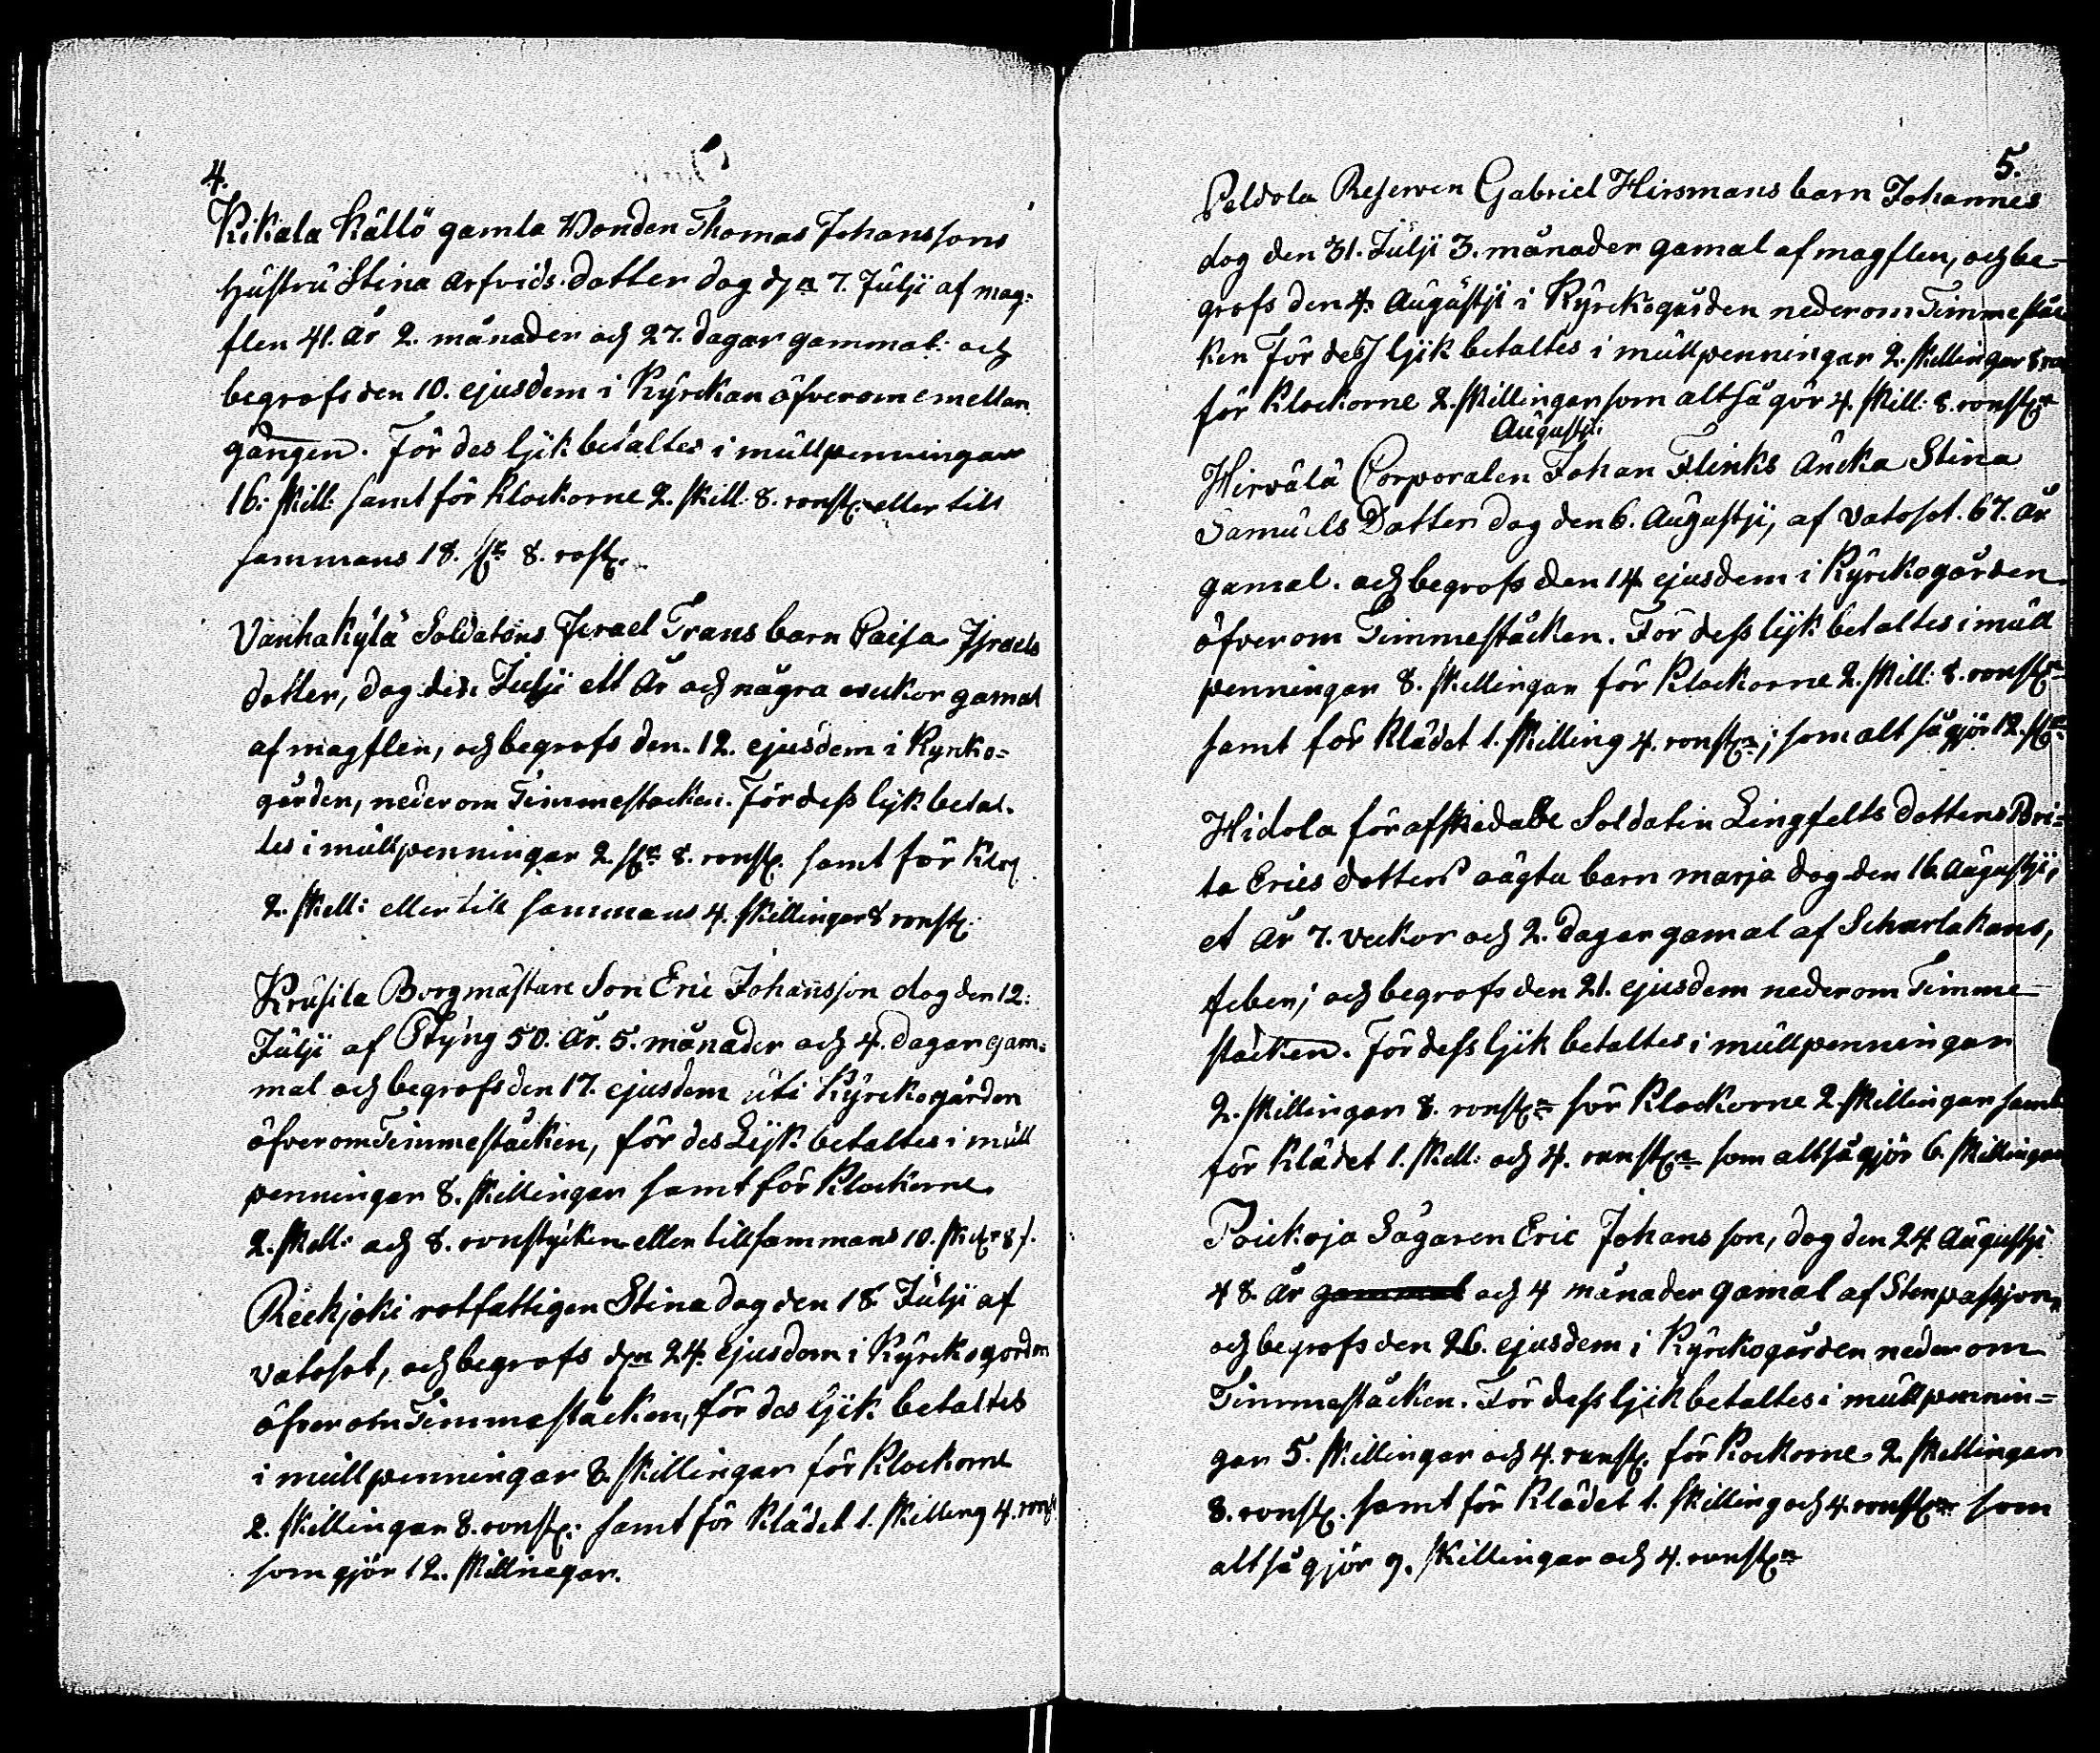 4.
Kikala Källö gamla Bonden Thomas Johanssons
hustru Stina Arfvids dotter dog den 7. Julji af mag-
flen 41. År 2. månader och 27. dagar gammal. och
begrofs den 10. ejusdem i Kyrckan öfverom emellan
gången. För des ljik betaltes i mullpenningar
16. skill: samt för klockorne 2. skill: 8. ronst. eller till
sammans 18. sk:r 8. rost.
Vanhakylä Soldatens Israel Trans barn Caisa Isjraels
dotter, dog den Julji ett År och några weckor gamal
af magflen, och begrofs den. 12. ejusdem i Kyrko-
gården, nederom Timmestacken. För dess lijk betal-
tes i mullpenningar 2. sk:r 8. ronst. samt för kloc
2. skell: eller till sammans 4. skillingar 8 ronst.
Krusila Borgmästare Son Eric Johansson dog den 12.
Julji af Styng 50. År. 5. månader och 4. dagar gam-
mal och begrofs den 17. ejusdem uti Kyrckogården
öfverom Timmestäcken, för des Lijk betaltes i mull
penningar 8. skillingar samt för klockorne
2. skell: och 8. ronstycken eller tillsammans 10. sk:r 8 s.
Reckjoki rotfattigen Stina dog den 18. Julji af
vatosot, och begrofs den 24. ejusdem i Kyrckogorden
öfverom Timmestäcken, för des ljik betaltes
i mullpenningar 8. skillingar för klockorne
2. skillingar 8. ronst. samt för klädet 1. skilling 4. ronst
som gjör 12. skillnegar.
5.
Peldola Reserven Gabriel Hirsmans barn Johannes
dog den 31. Julji 3. månader gamal af magflen, och be-
grofs den 4. Augustji i Kyrckogården nederom Timmestäc
ken För dess ljik betaltes i mullpenningar 2. skellingar 8 ron
för klockorne 2. skillingar som altså gör 4. skill: 8. ronst:r
Augustji
Hirvälä Corporalen Johan Flinks Äncka Stina
Samuels Dotter dog den 6. Augustji, af vatosot. 67. År
gamal. och begrofs den 14. ejusdem i Kyrckogården
öfverom Timmestäcken. För dess lijk betaltes i mull
penningar 8. skellingar för klockorne 2. skill: 8. ronst:r
samt för klädet 1. skelling 4. ronst:r; som alt så gjör 12. sk:r
Hidola förafskiedade Soldaten Lingfelts dotters Bri-
ta Erics dotters oägta barn marja dog den 16. Augustji,
et År 7. veckor och 2. dagar gamal af Scharlakans,
feber; och begrofs den 21. ejusdem nederom Timme-
stäcken. För dess ljik betaltes i mullpenningar
2. skillingar 8. ronst:r för klockorne 2. skillingar samt
för klädet 1. skell: och 4. ronst:r som altså gjör 6. skillingar
Poickoja Sågaren Eric Johansson, dog den 24. Augustji
48. År gammal och 4 månader gamal af Stenpassjon,
och begrofs den 26. ejusdem i Kyrckogården nederom
Timmestäcken. För dess ljik betaltes i mullpennin-
gar 5. skillingar och 4. ronst. för kockorne 2. skellingar
8. ronst. samt för klädet 1. skilling och 4. ronst:r som
altså gjör 9. skillingar och 4. ronst:r